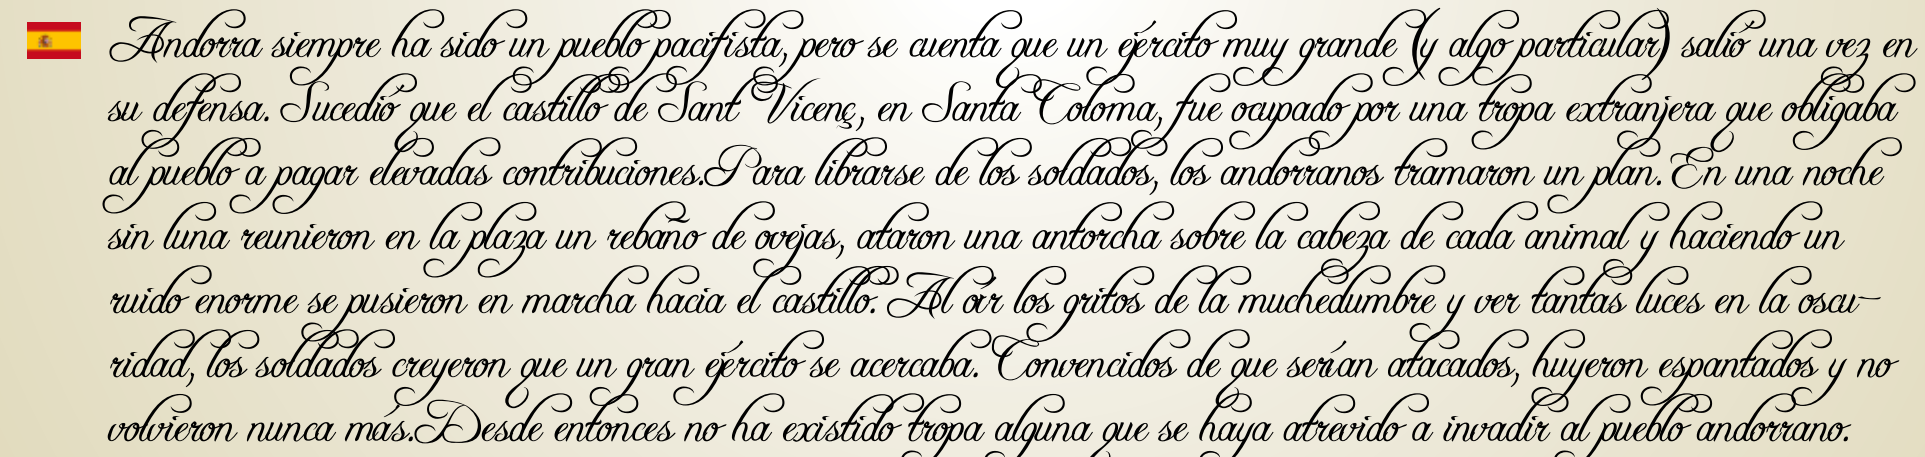 Andorra siempre ha sido un pueblo pacifista, pero se cuenta que un ejército muy grande (y algo particular) salió una vez en
su defensa. Sucedió que el castillo de Sant Vicenç, en Santa Coloma, fue ocupado por una tropa extranjera que obligaba
al pueblo a pagar elevadas contribuciones.Para librarse de los soldados, los andorranos tramaron un plan. En una noche
sin luna reunieron en la plaza un rebaño de ovejas, ataron una antorcha sobre la cabeza de cada animal y haciendo un
ruido enorme se pusieron en marcha hacia el castillo. Al oír los gritos de la muchedumbre y ver tantas luces en la oscu-
ridad, los soldados creyeron que un gran ejército se acercaba. Convencidos de que serían atacados, huyeron espantados y no
volvieron nunca más.Desde entonces no ha existido tropa alguna que se haya atrevido a invadir al pueblo andorrano.